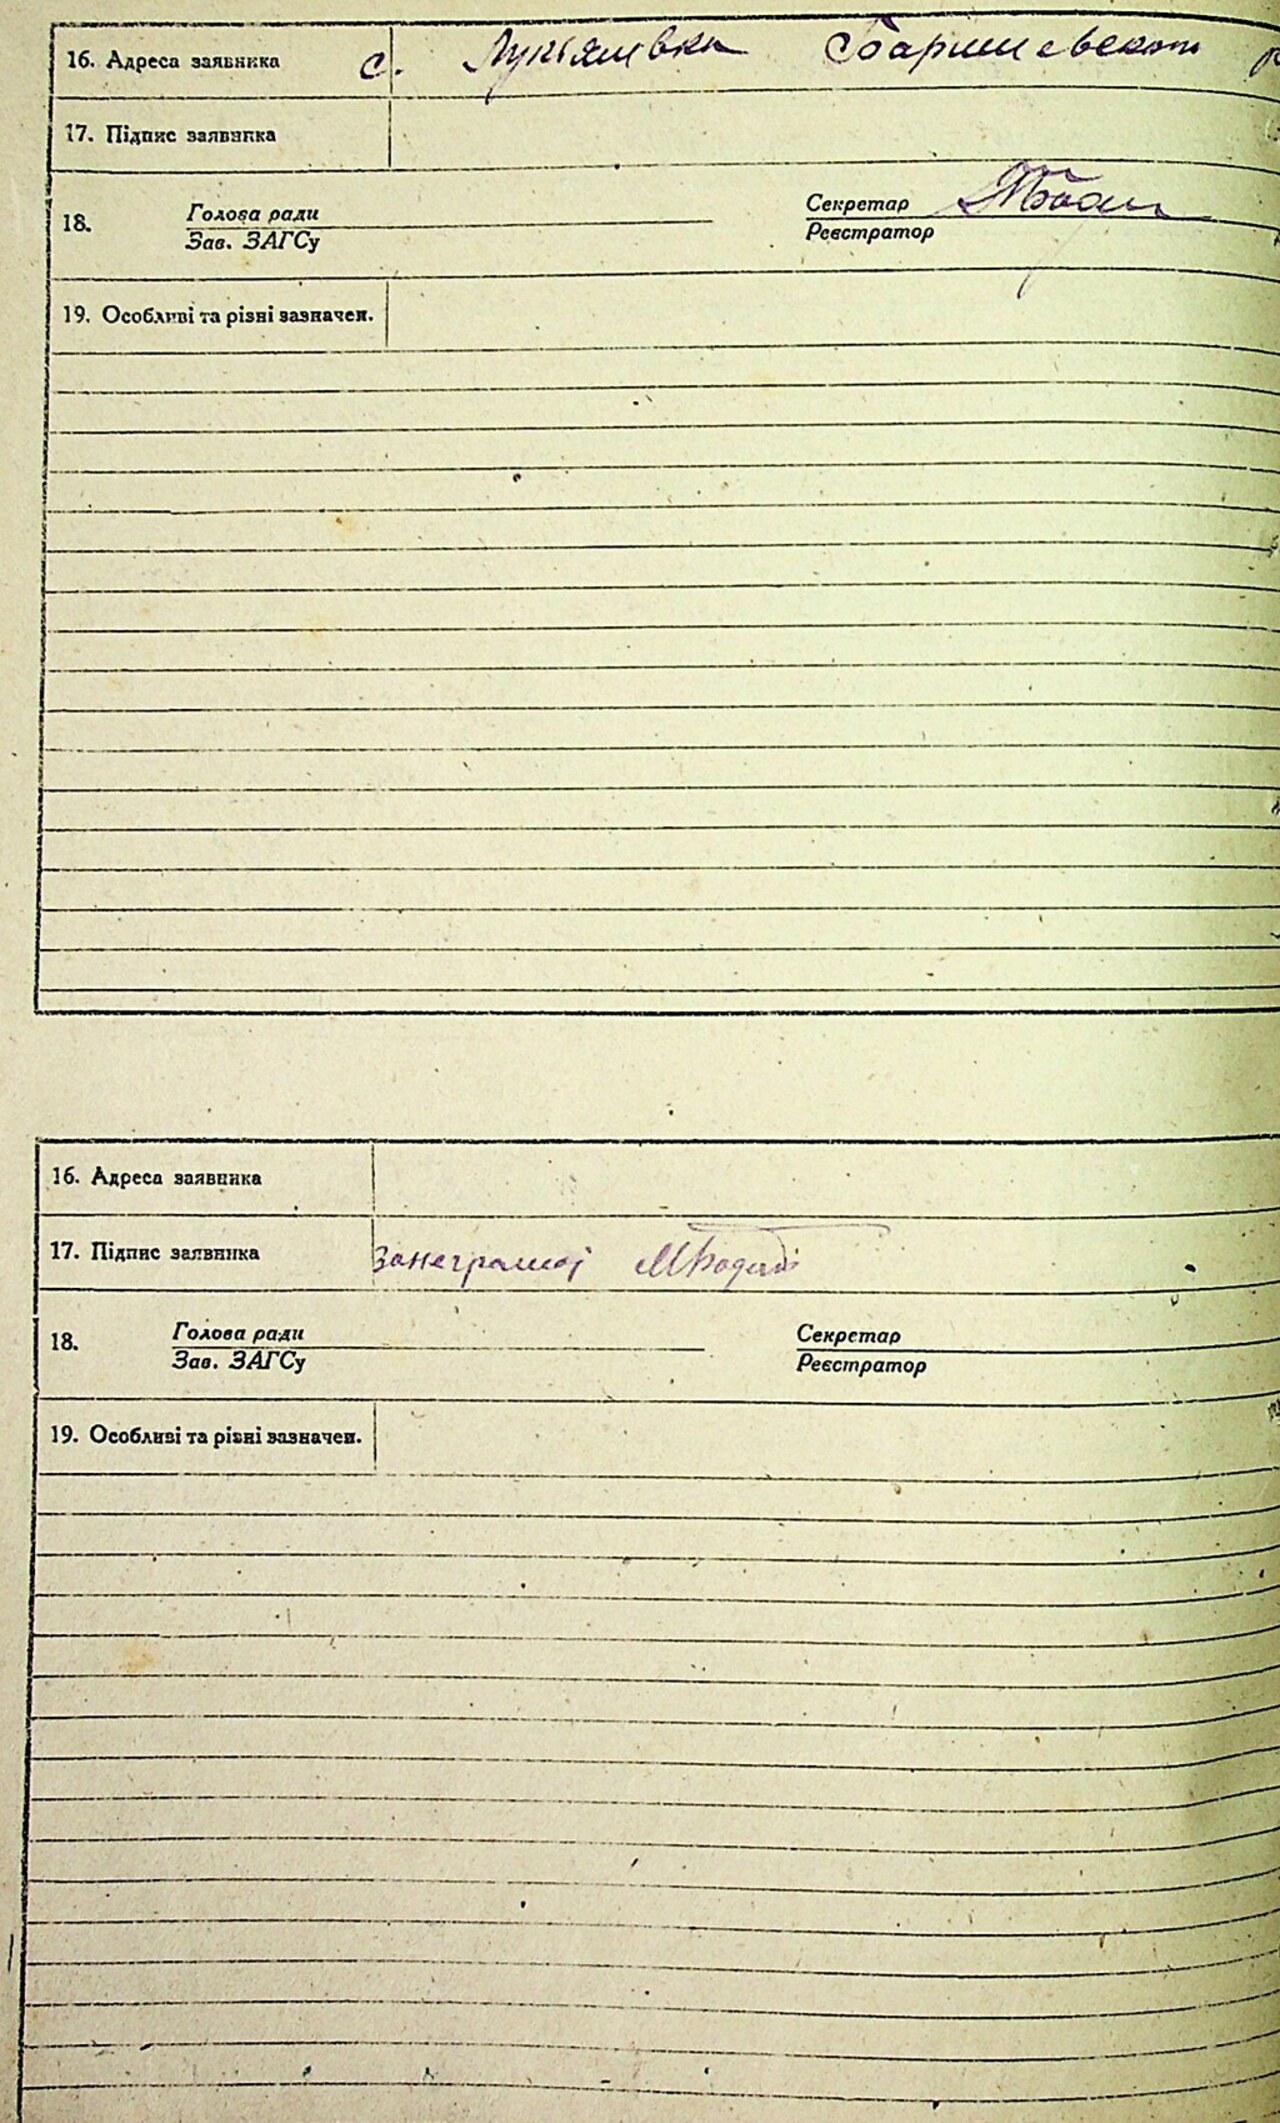 16. Адреса заявника с. Лукьянивка Баришевского р
17. Підпис заявника
18. Голова ради Секретар
Зав. ЗАГСу Реєстратор
19. Особливі та різні зазначен.
16. Адреса заявника
17. Підпис заявника
18. Голова ради Секретар
Зав. ЗАГСу Реєстратор
19. Особливі та різні зазначен.